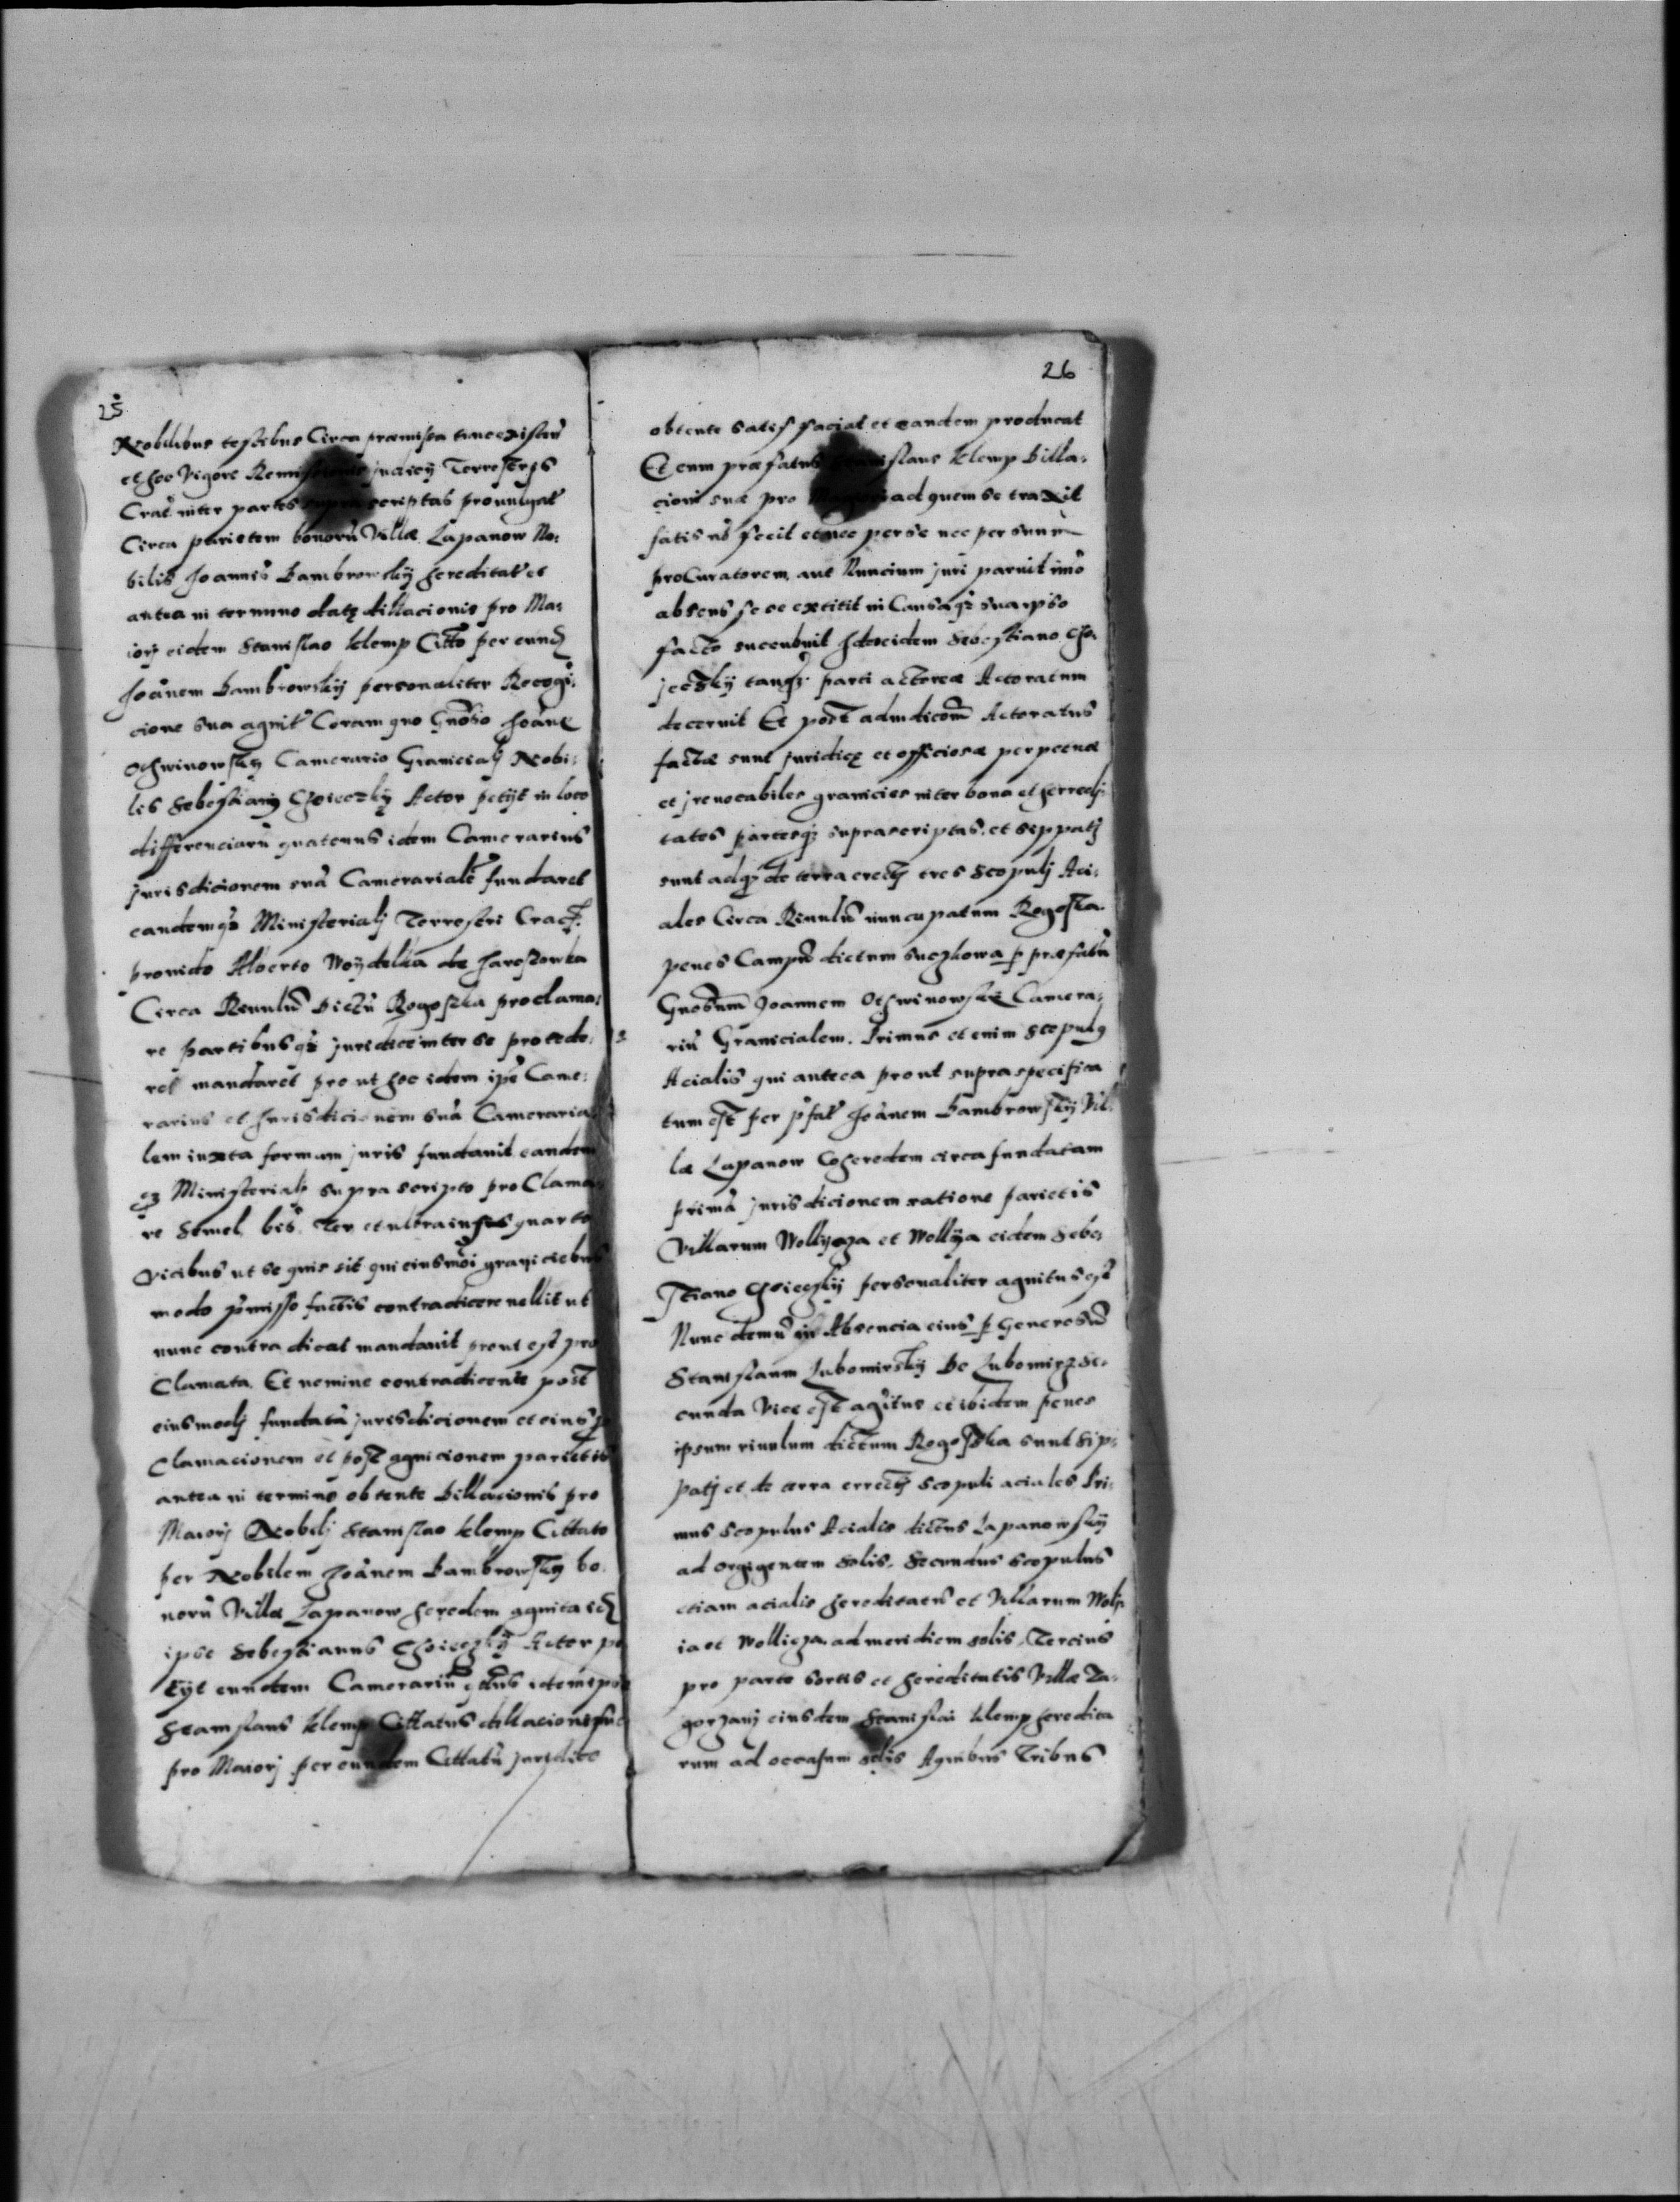 25
Nobilibus testibus Circa præmissa tunc existen̄
et hoc vigore Remissionis judicij Terrestris
Crac̄ inter partes supra scriptas prouulgat̄
Circa parietem bonorū Villæ Lapanow No:
bilis Joannis Bambrowskij hereditat̄ et
antea in termino datę dillacionis pro Ma:
iorj eidem Stanislao Klemp Citt̄o per eund̄
Joānem Bambrowskij personaliter Recogi:
cione sua agnit̄ Coram quo Gn̄oso Joānę
Othwinowskÿ Camerario Granicialj Nobi:
lis Sebestianꝰ Choieczkÿ Actor petijt in loco
differenciarū quatenus idem Camerarius
jurisdicionem suā Camerarialē fundaret
eandemqꝫ Ministerialj Terrestri Crac̄.
prouido Alberto Woÿdelka de Jaroszowka
Circa Riuulū Dictū Rogoszka proclama:
re partibusqꝫ juridice inter se procede:
rel mandaret pro ut hoc idem ip̄e Came:
rarius et Jurisdicionem suā Cameraria
lem iuxta formam juris fundauit eandem
qꝫ Ministerialj supra scripto proClama
re Semel, bis, Ter et ultra in his quarto
vicibus ut se quis sit qui eiusmōi graniciebus
modo p̄misso factis contradicere vellit ut
nunc contra dicat mandauit prout est pro
Clamata. Et nemine contradicente post
eiusmodj fundatā jurisdicionem et eius p
Clamacionem et post agnicionem parietis
antea in termino obtente Dillacionis pro
Maiorj Nobilj Stanislao Klemp Cittato
per Nobilem Joānem Bambrowskÿ bo:
norū Villæ Lapanow heredem agnita id̄
ipse Sebestianus Choieczkÿ Actor pe
tijt eundem Camerariū q̄tnus idem ipse
Stanislaus Klemp Cittatus dillacioni suæ
pro Maiorj per eundem Cittatū juridice
26
obtente satisfaciat et eandem producat
Et cum præfatus Stanislaus Klemp Dilla:
cioni suæ pro ad quem se traxit
satis nō fecit et nec per se nec per suum
proCuratorem, aut Nuncium juri paruit imo
absens se se extitit in Causaqꝫ sua ipso
facto sucubuit Ideo eidem Sebestiano Cho:
jeczkÿ tanqꝫ parti actoreæ Actoratum
decernit Et post adiudicōem Actoratus
factæ sunt juridicę et officiosæ perpetuæ
et jrreuocabiles granicies inter bona et herredi:
tates partesqꝫ suprascriptas. et sippatj
sunt adqꝫ de terra erectj tres Scopulj Aci:
ales Circa Riuulū nuncupatum Rogoszka.
penes Campū dictum Suczkowa p præfatū
Gnosum̄ Joannem Othwinowskÿ Camera:
riū Granicialem. Primus et enim Scopulꝰ
Acialis qui antea prout supra specifica
tum est per p̄fat̄ Joānem Bambrowskÿ Vil:
læ Lapanow Coheredem circa fundatam
primā jurisdicionem ratione parietis
Villarum Wollÿcza et Wollÿa eidem Sebe:
stiano Choieczkÿ personaliter agnitus est
Nunc demū in Absencia eius p Generosū
Stanislaum Lubomirskÿ De Lubomirz Se:
cunda Vice est agnitus et ibidem penes
ipsum riuulum dictum Rogoszka sunt Sip:
patj et de terra errectj Scopuli aciales Pri:
mus Scopulus Acialis dictus Lapanowskÿ
ad orgigentem Solis. Secundus Scopulus
etiam acialis hereditatū et Villarum Wolÿ
ia et Wollicza. ad meridiem solis. Tercius
pro parte sortis et hereditatis Villæ Ta:
gorzanj eiusdem Stanislai Klemp heredita
rum ad occasum solis Aquibus Tribus